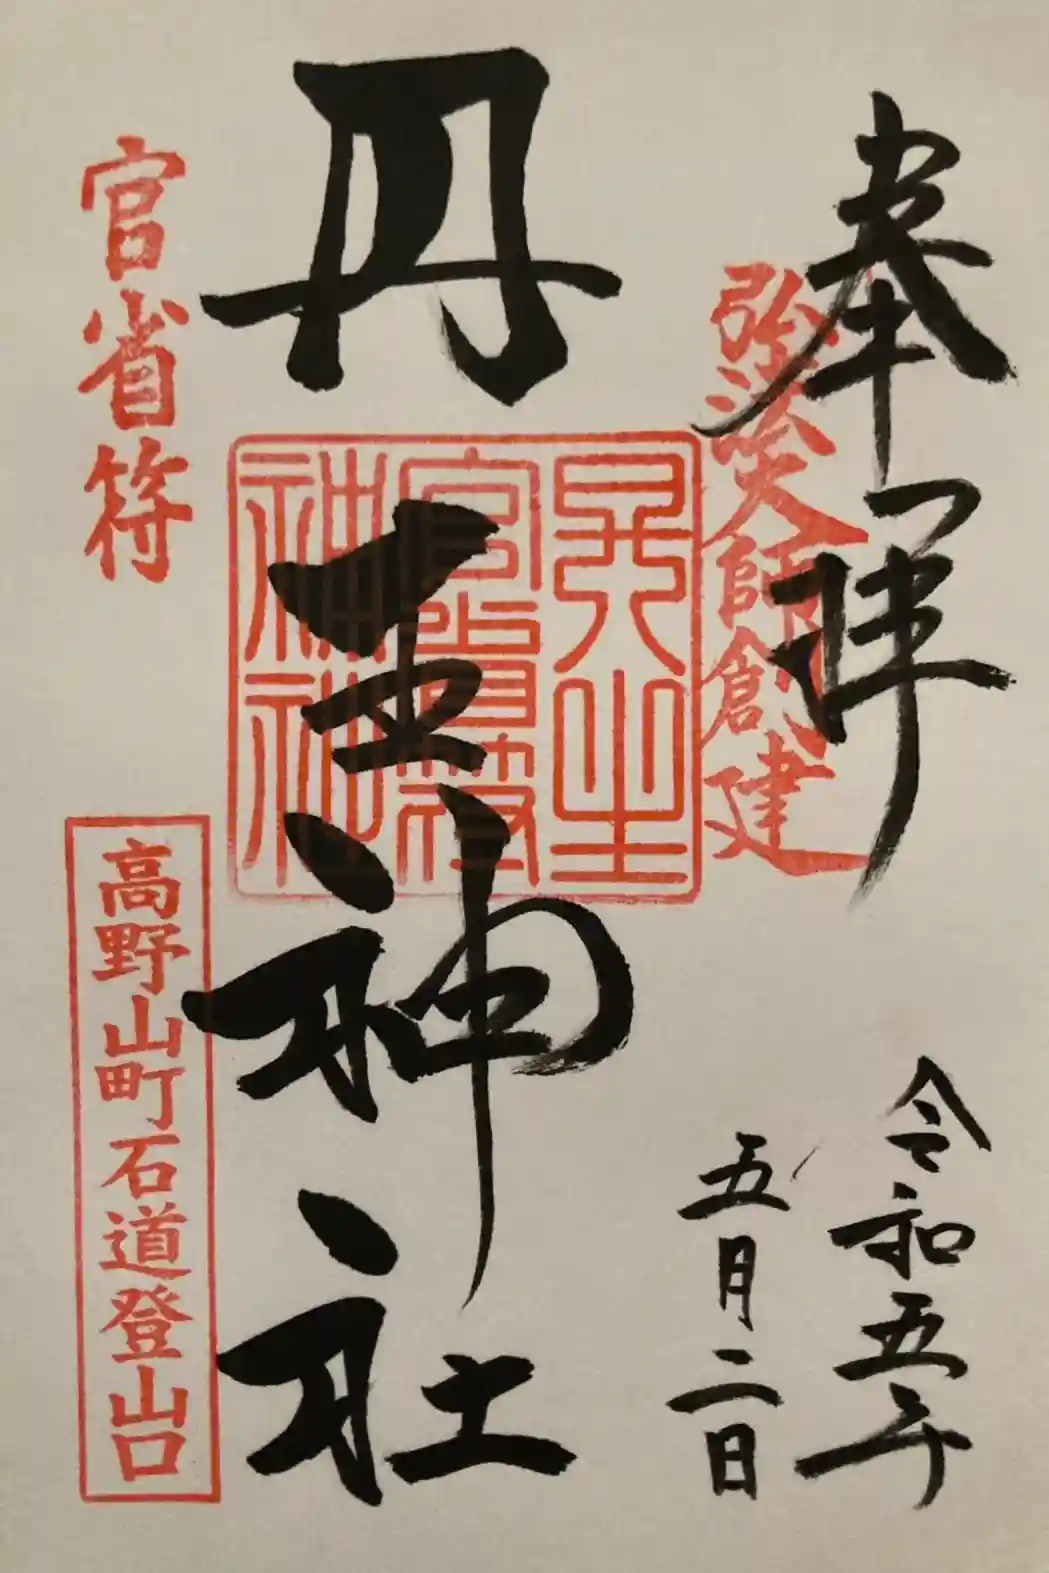 奉拝
弘法大師創建
令和五年
五月二日
丹生神社
丹生官省符神社
官省符
高野山町石道登山口